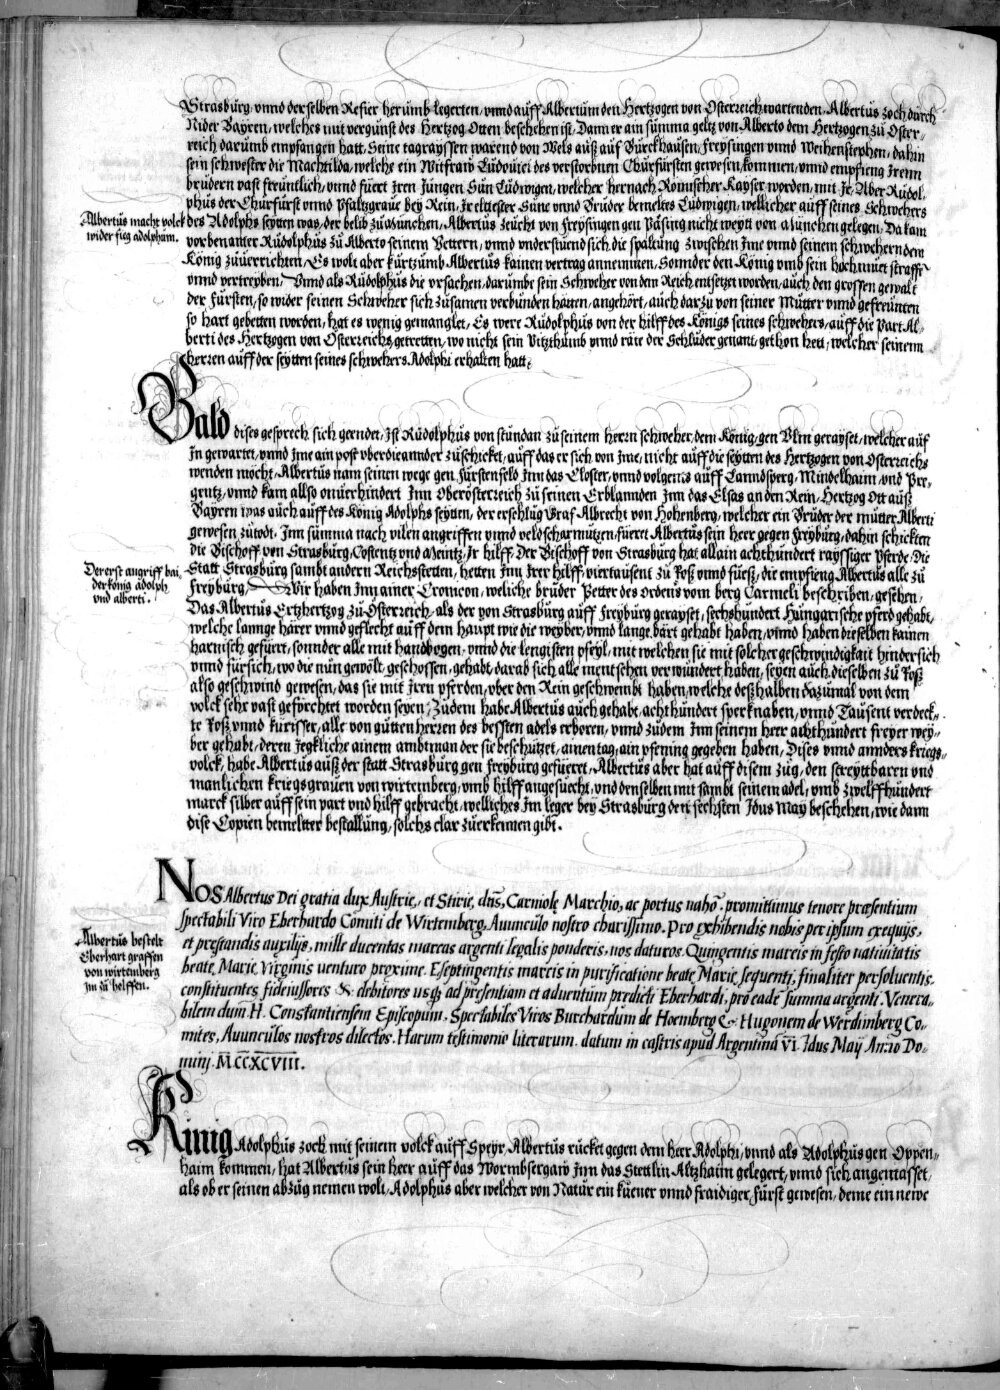 Strasbürg, vnnd derselben Refier herümb legerten, vnnd auff Albertum den Hertzogen von Osterreich wartenden, Albertüs zoch dürch
Nider Bayren, welches mit vergünst des Hertzog Otten beschehen ist, Dann er ain sümma geltz von Alberto dem Hertzogen zü Oster-
reich darümb empfangen hatt, Seine tagrayssen warend von Wels auß auf Bürckhausen, Freysingen vnnd Weihenstephen, dahin
sein schwester die Machtilda, welche ein Witfraw Lüdouici des verstorbnen Chürfürsten gewesen, kommen, vnnd empfieng Jrenn
brüdern vast freüntlich, vnnd füert Jren Jüngen Sün Lüdwigen, welcher hernach Römischer Kayser worden, mit Jr, Aber Rüdol-
phüs der Chürfürst vnnd Pfaltzgraue bey Rein, Jr eltester Süne vnnd Brüder bemeltes Lüdwigen, wellicher auff seines Schwehers
des Adolphs seytten was, der belib zü München, Albertüs zeücht von Freysingen gen Päsing nicht weytt von München gelegen, Da kam
vorbenanter Rüdolphüs zü Alberto seinem Vettern, vnnd vnderstüend sich, die spaltüng zwischen Jme vnnd seinem schwehern dem
König züuerrichten, Es wolt aber kürtzümb Albertüs kainen vertrag annemmen, Sonnder den König vmb sein hochmuet straffen
vnnd vertreyben, Vnnd als Rüdolphüs die vrsachen, darümbe sein Schweher von dem Reich entsetzet worden, aüch den grossen gewalt
der Fürsten, so wider seinen Schweher sich züsamen verbünden hätten, angehört, aüch darzü von seiner Mütter vnnd gefreünten
so hart gebetten worden, hat es wenig gemanglet, Es were Rüdolphüs von der hilff des Königs seines schwehers, aüff die Part Al-
berti des Hertzogen von Osterreichs getretten, wo nicht sein Vitzthümb vnnd räte der Schlüder genant, gethon hett, welcher seinem
herren aüff der seytten seines schwehers Adolphi erhalten hatt.
Albertüs macht volck
wider sich adolphüm.
Bald dises gesprech sich geendet, Jst Rüdolphüs von stündan zü seinem herrn schweher, dem König, gen Vlm gerayset, welcher aüf
Jn gewartet, vnnd Jme ain post vber die annder züschicket, aüff das er sich von Jme, nicht aüff die seytten des Hertzogen von Osterreichs
wenden möcht, Albertüs nam seinen wege gen Fürstenfeld Jnn das Closter, vnnd volgents aüff Lanndsperg, Mindelhaim, vnd Bre-
gentz, vnnd kam allso onuerhindert Jnn Oberösterreich zü seinen Erblannden Jnn das Elsas an den Rein, Hertzog Ott aüß
Bayren was aüch aüff des König Adolphs seytten, der erschlüg Graf Albrecht von Hohenberg, welcher ein Brüder der mütter Alberti
gewesen züuor, Jnn sümma nach vilen angriffen vnnd veldscharmützen, füeret Albertüs sein heer gegen Freybürg, dahin schickten
die Bischoff von Strasbürg, Costentz vnd Meintz, Jr hilff, Der Bischoff von Strasbürg hat allain achthündert raysiger Pferde, Die
Statt Strasbürg sambt andern Reichsstetten, hetten Jnn Jrer hilff, viertaüsent zü Roß vnnd füeß, die empfieng Albertüs alle zü
Freybürg, Wir haben Jnn ainer Cronicon, weliche brüder Petter des ordens vom berg Carmeli beschriben, gesehen,
Das Albertüs Ertzhertzog zü Osterreich, als der von Strasbürg aüff Freybürg gerayset, sechshündert Hüngarische pferd gehabt,
welche lannge härer vnnd geflecht aüff dem haüpt wie die weyber, vnnd lange bärt gehabt haben, vnnd haben dieselben kainen
harnisch gefüert, sonnder alle mit handbogen, vnnd die lengisten pfeyl, mit welchen sie mit solcher geschwindigkait hindersich
vnnd fürsich, wo die nün gewölt, geschossen, gehabt, darab sich alle mentschen verwündert haben, seyen aüch dieselben zü Roß
also geschwind gewesen, das sie mit Jren pferden, vber den Rein geschwembt haben, welche deßhalben dazümal von dem
volck sehr vast geförchtet worden seyen, Züdem habe Albertüs aüch gehabt, achthündert sperknaben, vnnd Taüsent verdeck-
te Roß vnnd kürisser, alle von gütten herren des bessten adels erboren, vnnd züdem Jnn seinem heer achthündert freyer wey-
ber gehabt, deren Jegkliche ainem ambtman der sie beschützet, ainen tag, ain pfening gegeben haben, Dises vnnd annders kriegs-
volck, habe Albertüs aüß der statt Strasbürg gen Freybürg gefüeret, Albertüs aber hat aüff disem züg, den streyttbaren vnd
manlichen kriegsgrauen von Wirtemberg, vmb hilff angesücht, vnd denselben mit sambt seinem adel, vmb zwelffhündert
marck silber aüff sein part vnd hilff gebracht, welliches Jm leger bey Strasbürg den sechsten Jdus May beschehen, wie dann
dise Copien bemelter bestallüng, solchs clar züerkennen gibt.
Der erst angriff bai-
der könig adolph
vnd alberti.
Nos Albertus Dei gratia dux Austrie, et Stirie, dns, Carniole Marchio, ac portus nahō. promittimus tenore præsentium
spectabili Viro Eberhardo Comiti de Wirtemberg, Auunculo nostro charissimo. Pro exhibendis nobis per ipsum exequijs,
et prestandis auxilijs, mille ducentas marcas argenti legalis ponderis, nos daturos. Quingentis marcis in festo natiuitatis
beate Marie Virginis venturo proxime. Et septingentis marcis in purificatione beate Marie sequenti, finaliter persoluentis.
constituentes fideiussores & debitores usq; ad presentiam et aduentum predicti Eberhardi, pro eadē summa argenti. Venera-
bilem dum̄. H. Constantiensem Episcopum. Spectabiles Viros Burchardum de Hoemberg & Hugonem de Werdimberg Co-
mites, Auunculos nostros dilectos. Harum testimonio literarum. datum in castris apud Argentina VI. Idus Maij Anno Do-
minj. MCCXCVIII.
Albertüs bestelt
Eberhart graffen
von wirtemberg
Jm zü helffen.
König Adolphüs zoch mit seinem volck aüff Speyr, Albertüs rücket gegen dem heer Adolphi, vnnd als Adolphüs gen Oppen-
haim kommen, hat Albertüs sein heer aüff das Wormbsergaw Jnn das Stettlin Altzhaim gelegert, vnnd sich angemasset,
als ob er seinen abzüg nemen wolt, Adolphüs aber welcher von Natür ein küener vnnd fraidiger, fürst gewesen, deme ein newe